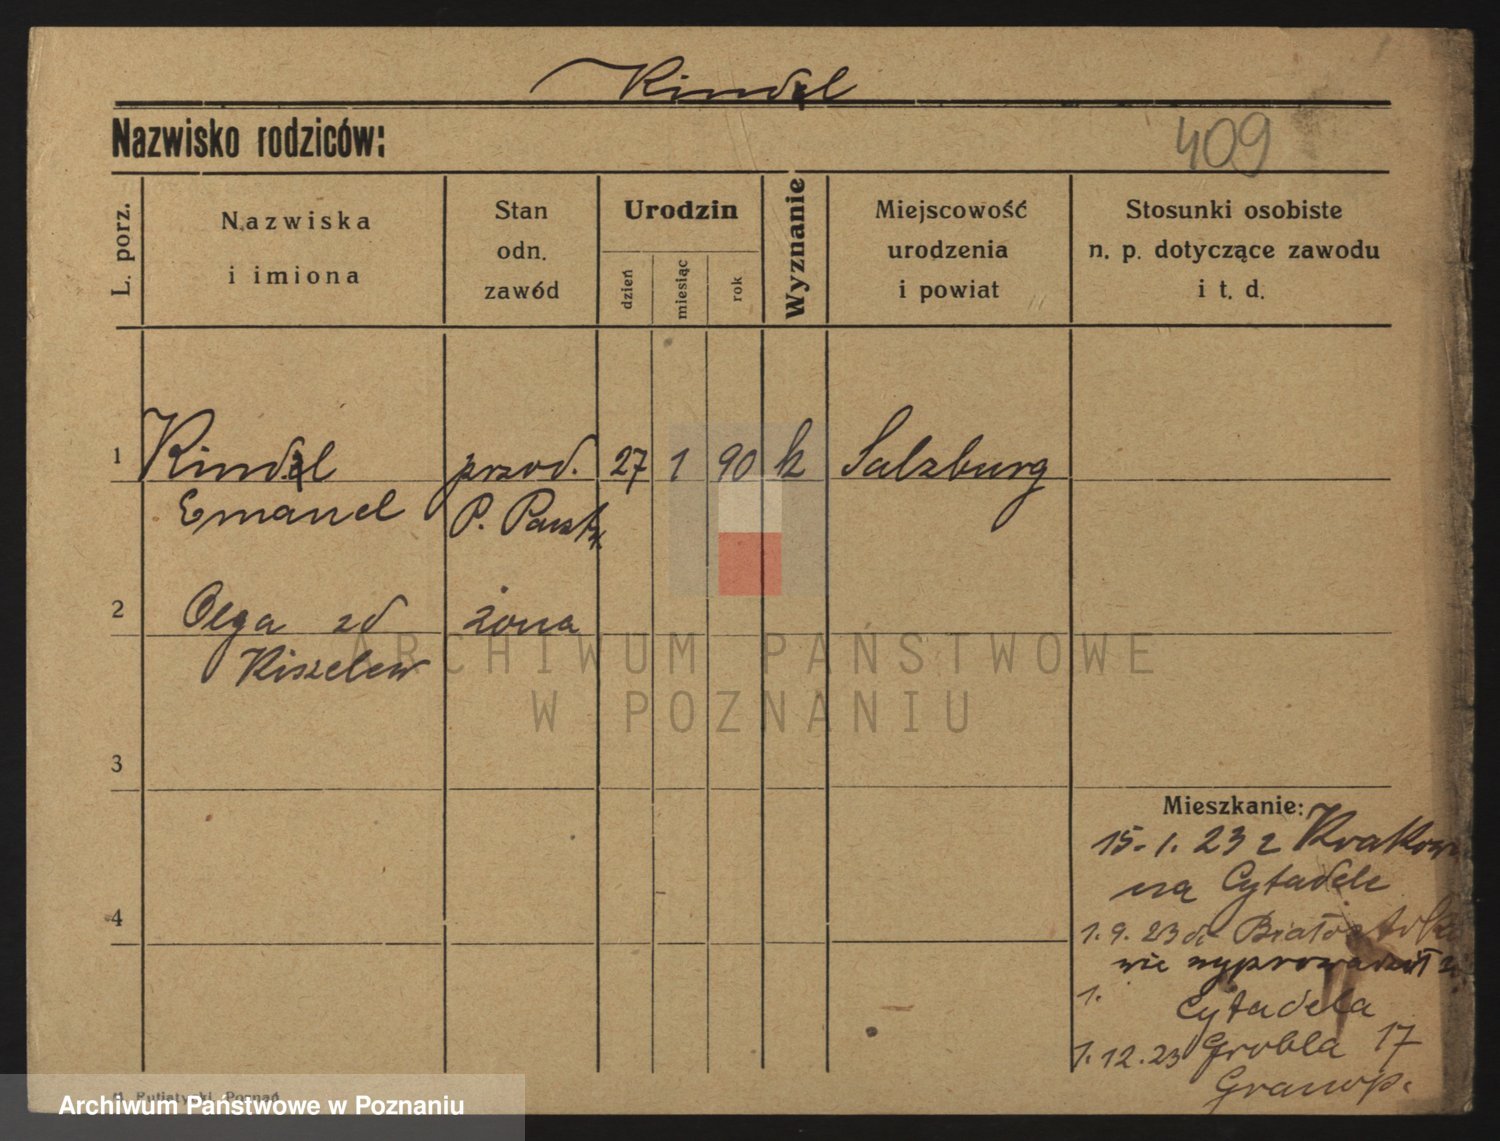 Kindl
Nazwisko rodziców:
409
L. porz.
Nazwiska
i imiona
Stan
odn.
zawód
Urodzin
dzień
miesiąc
rok
Wyznanie
Miejscowość
urodzenia
i powiat
Stosunki osobiste
n. p. dotyczące zawodu
i t. d.
1 Kindl przod. 27 1 90 k Salzburg
Emanuel P. Państw.
2 Olga zd żona
Kiszelew
ARCHIWUM PAŃSTWOWE
W POZNANIU
3
Mieszkanie:
15. 1. 23 z Krakowa
na Cytadelę
4
1. 9. 23 do
nie wyprowadził
1. Cytadela
1. 12. 23 Grobla 17
Poznań
Archiwum Państwowe w Poznaniu